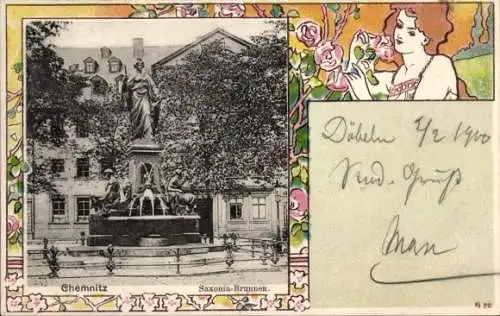 Chemnitz Saxonia-Brunnen.
Döbeln 2/2 1900
Send. Gruß
Max